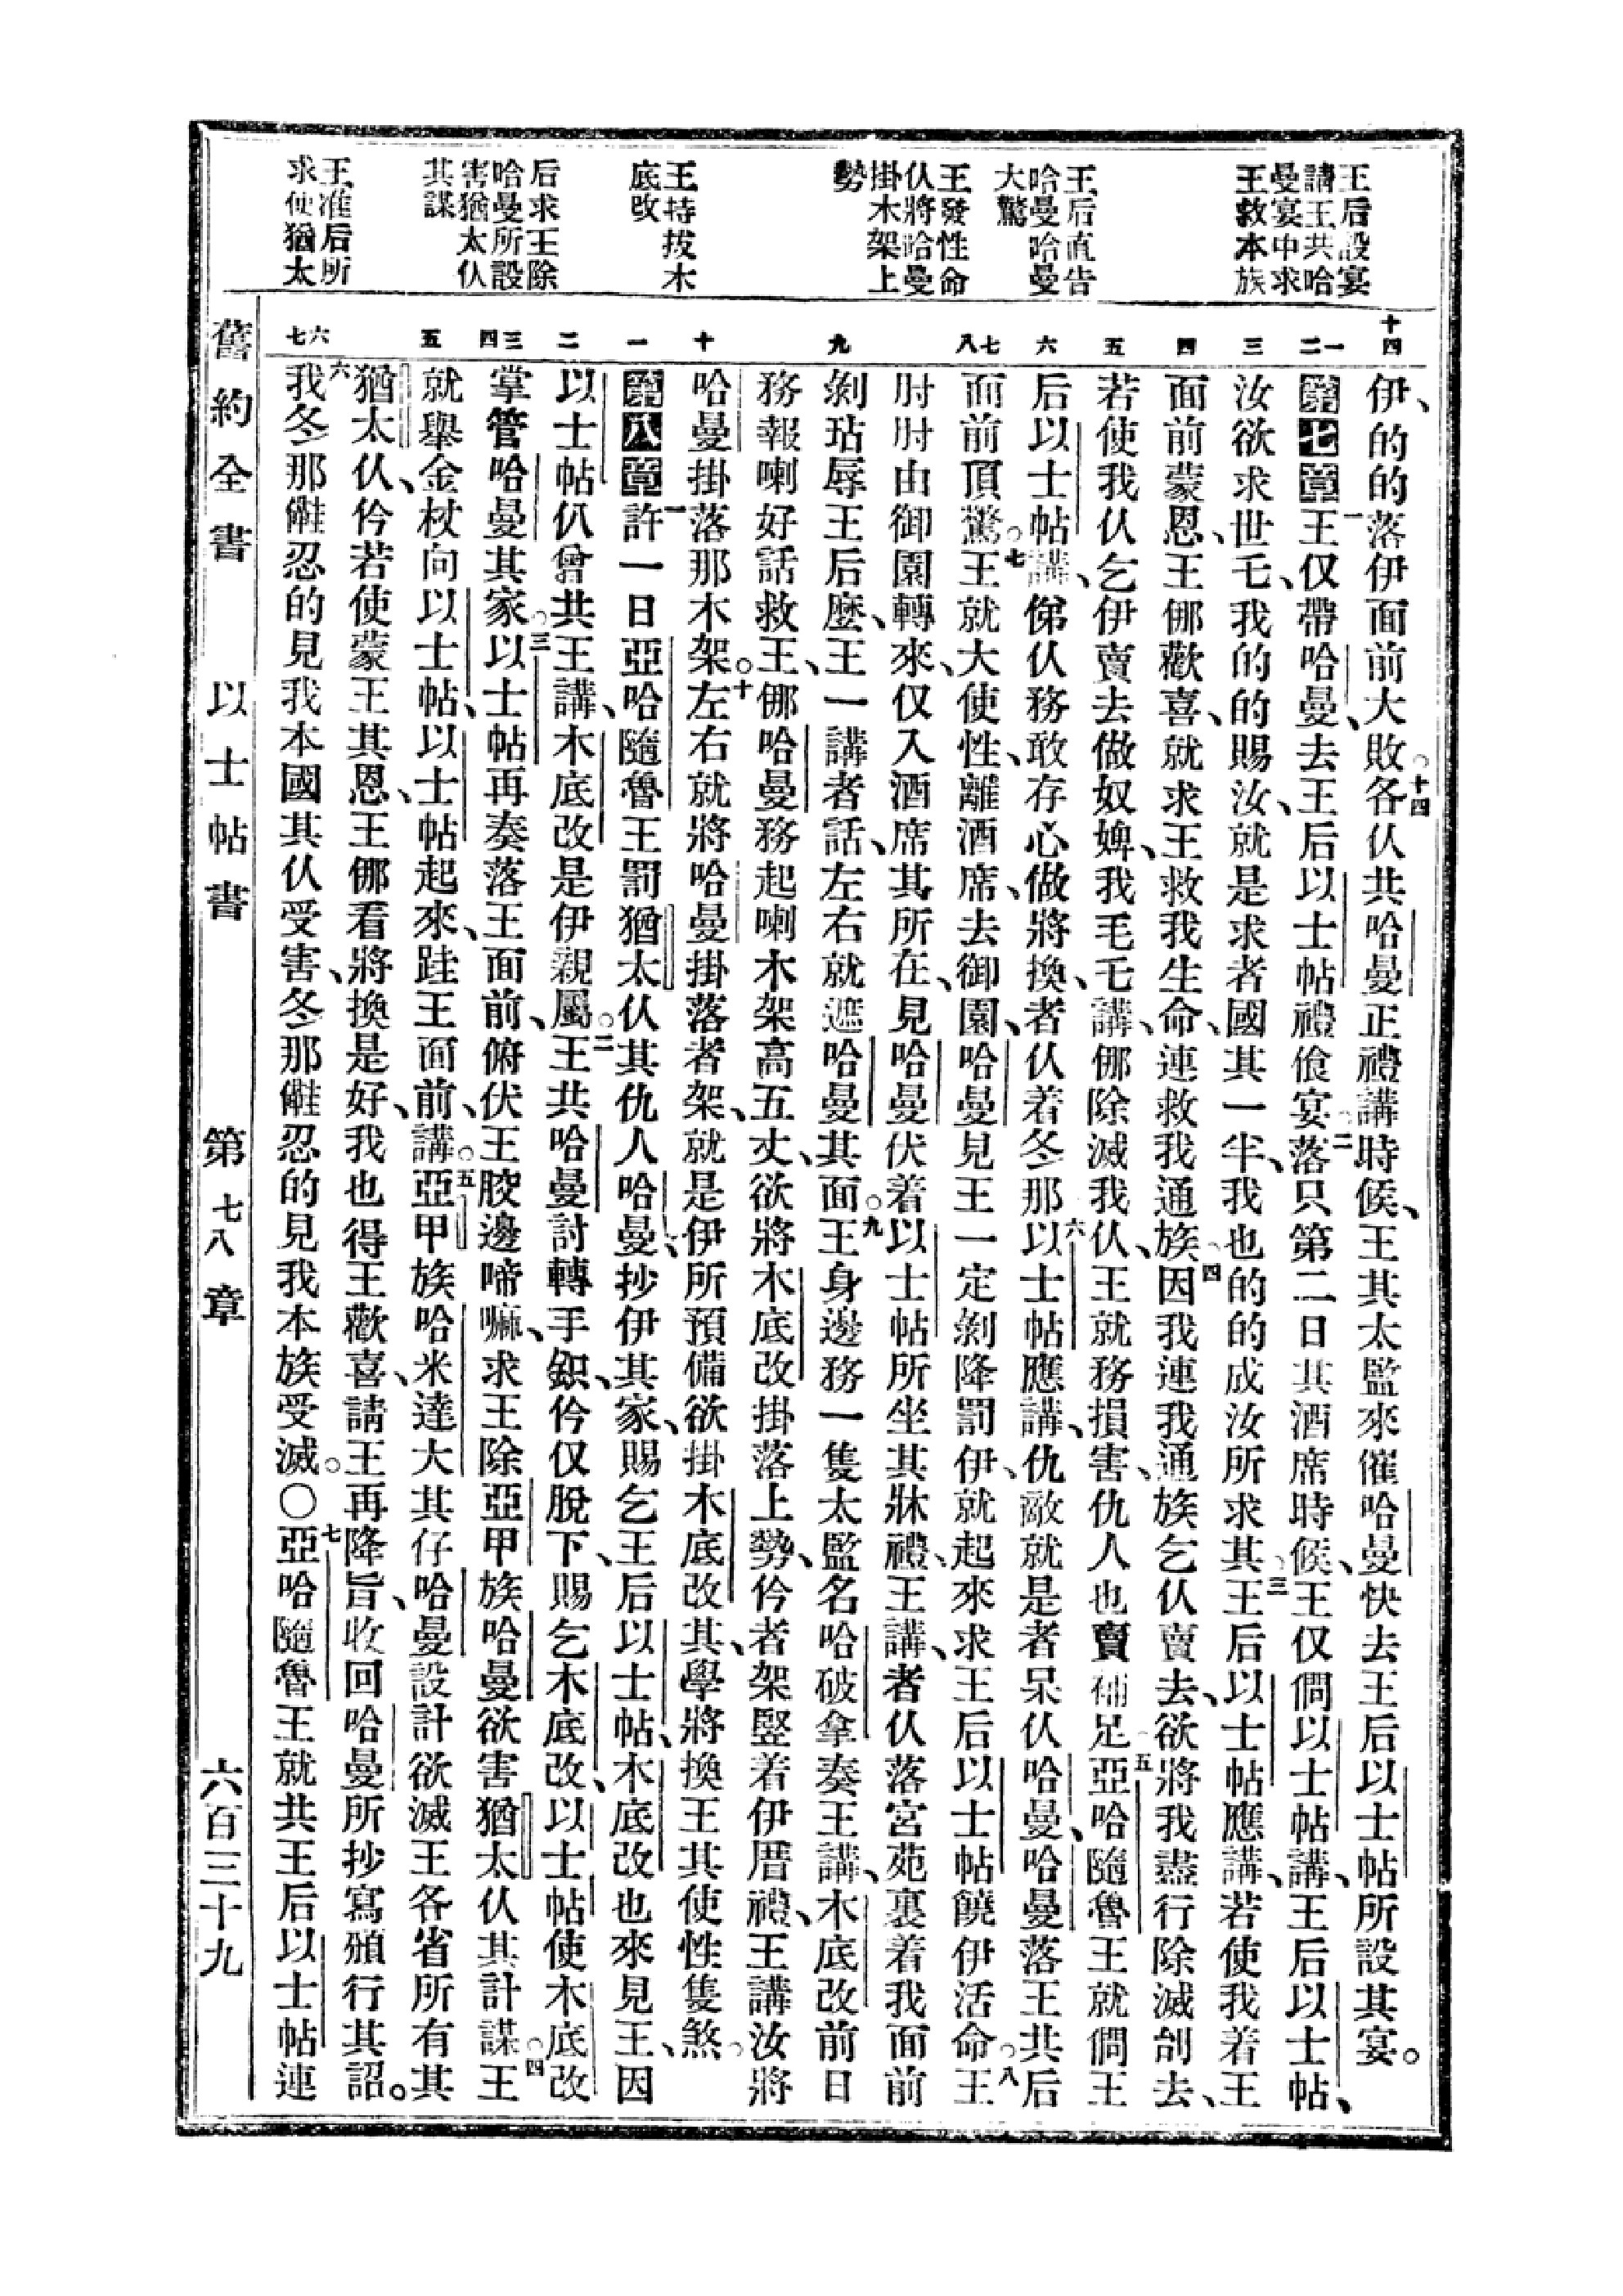 王后設宴
請王共哈
曼宴中求
王救本族
王后直告
哈曼哈曼
大驚
王發性命
仈將哈曼
掛木架上
勢
王持拔木
底改
后求王除
哈曼所設
害猶太仈
其謀
王准后所
求使猶太
十四
一二
三
四
五
六
七八
九
十
一
二
三四
五
六七
伊、的的落伊面前大敗。十四各仈共哈曼正禮講時候、王其太監來催哈曼快去王后以士帖所設其宴。
第七章一王仅帶哈曼、去王后以士帖禮飡宴。二落只第二日其酒席時候、王仅僩以士帖講、王后以士帖、
汝欲求世乇、我的的賜汝、就是求者國其一半、我也的的成汝所求其。三王后以士帖應講、若使我着王
面前蒙恩、王㑚歡喜、就求王救我生命、連救我通族。四因我連我通族乞仈賣去、欲將我盡行除滅刣去、
若使我仈乞伊賣去做奴婢、我乇乇講、㑚除滅我仈、王就務損害、仇人也賣補足。五亞哈隨魯王就僩王
后以士帖講、俤仈務敢存心做將換、者仈着冬那。六以士帖應講、仇敵就是者呆仈哈曼、哈曼落王共后
面前頂驚。七王就大使性、離酒席、去御園、哈曼見王一定剝降罰伊、就起來求王后以士帖饒伊活命。八王
肘肘由御園轉來、仅入酒席其所在、見哈曼伏着以士帖所坐其牀禮、王講、者仈落宮苑裏着我面前
剝玷辱王后麽、王一講者話、左右就遮哈曼其面。九王身邊務一隻太監名哈破拿奏王講、木底改前日
務報喇好話救王、㑚哈曼務起喇木架高五丈、欲將木底改掛落上勢、仱者架竪着伊厝禮、王講汝將
哈曼掛落那木架。十左右就將哈曼掛落者架、就是伊所預備欲掛木底改其、學將換王其使性隻煞。
第八章一許一日亞哈隨魯王罰猶太仈其仇人哈曼、抄伊其家、賜乞王后以士帖、木底改也來見王、因
以士帖仈曾共王講、木底改是伊親屬。二王共哈曼討轉手鈬、仱仅脫下、賜乞木底改、以士帖使木底改
掌管哈曼其家。三以士帖再奏落王面前、俯伏王骹邊啼嘛、求王除亞甲族哈曼欲害猶太仈其計謀。四王
就舉金杖向以士帖、以士帖起來、跬王面前、講。五亞甲族哈米達大其仔哈曼設計欲滅王各省所有其
猶太仈、仱若使蒙王其恩、王㑚看將換是好、我也得王歡喜、請王再降旨、收回哈曼所抄寫頒行其詔。
六我冬那㒎忍的見我本國其仈受害、冬那㒎忍的見我本族受滅。○七亞哈隨魯王就共王后以士帖連
舊約全書 以士帖書 第七八章 六百三十九